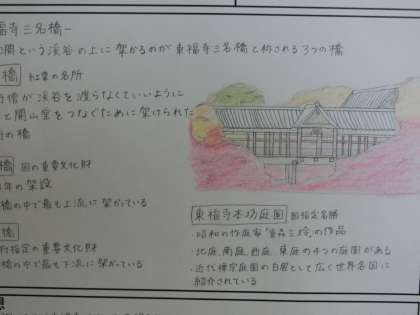 福寺三名橋-
という渓谷の上に架かるのが東福寺三名橋と称される3つの橋
橋 紅葉の名所
僧が渓谷を渡らなくていいように
と開山堂をつなぐために架けられた
の橋
橋 国の重要文化財
年の架設
橋の中で最も上流に架かっている
橋
指定の重要文化財
橋の中で最も下流に架かっている
東福寺本坊庭園 国指定名勝
・昭和の作庭家「重森三玲」の作品
・北庭、南庭、西庭、東庭の4つの庭園がある
・近代禅宗庭園の白眉として広く世界各国に
紹介されている
想